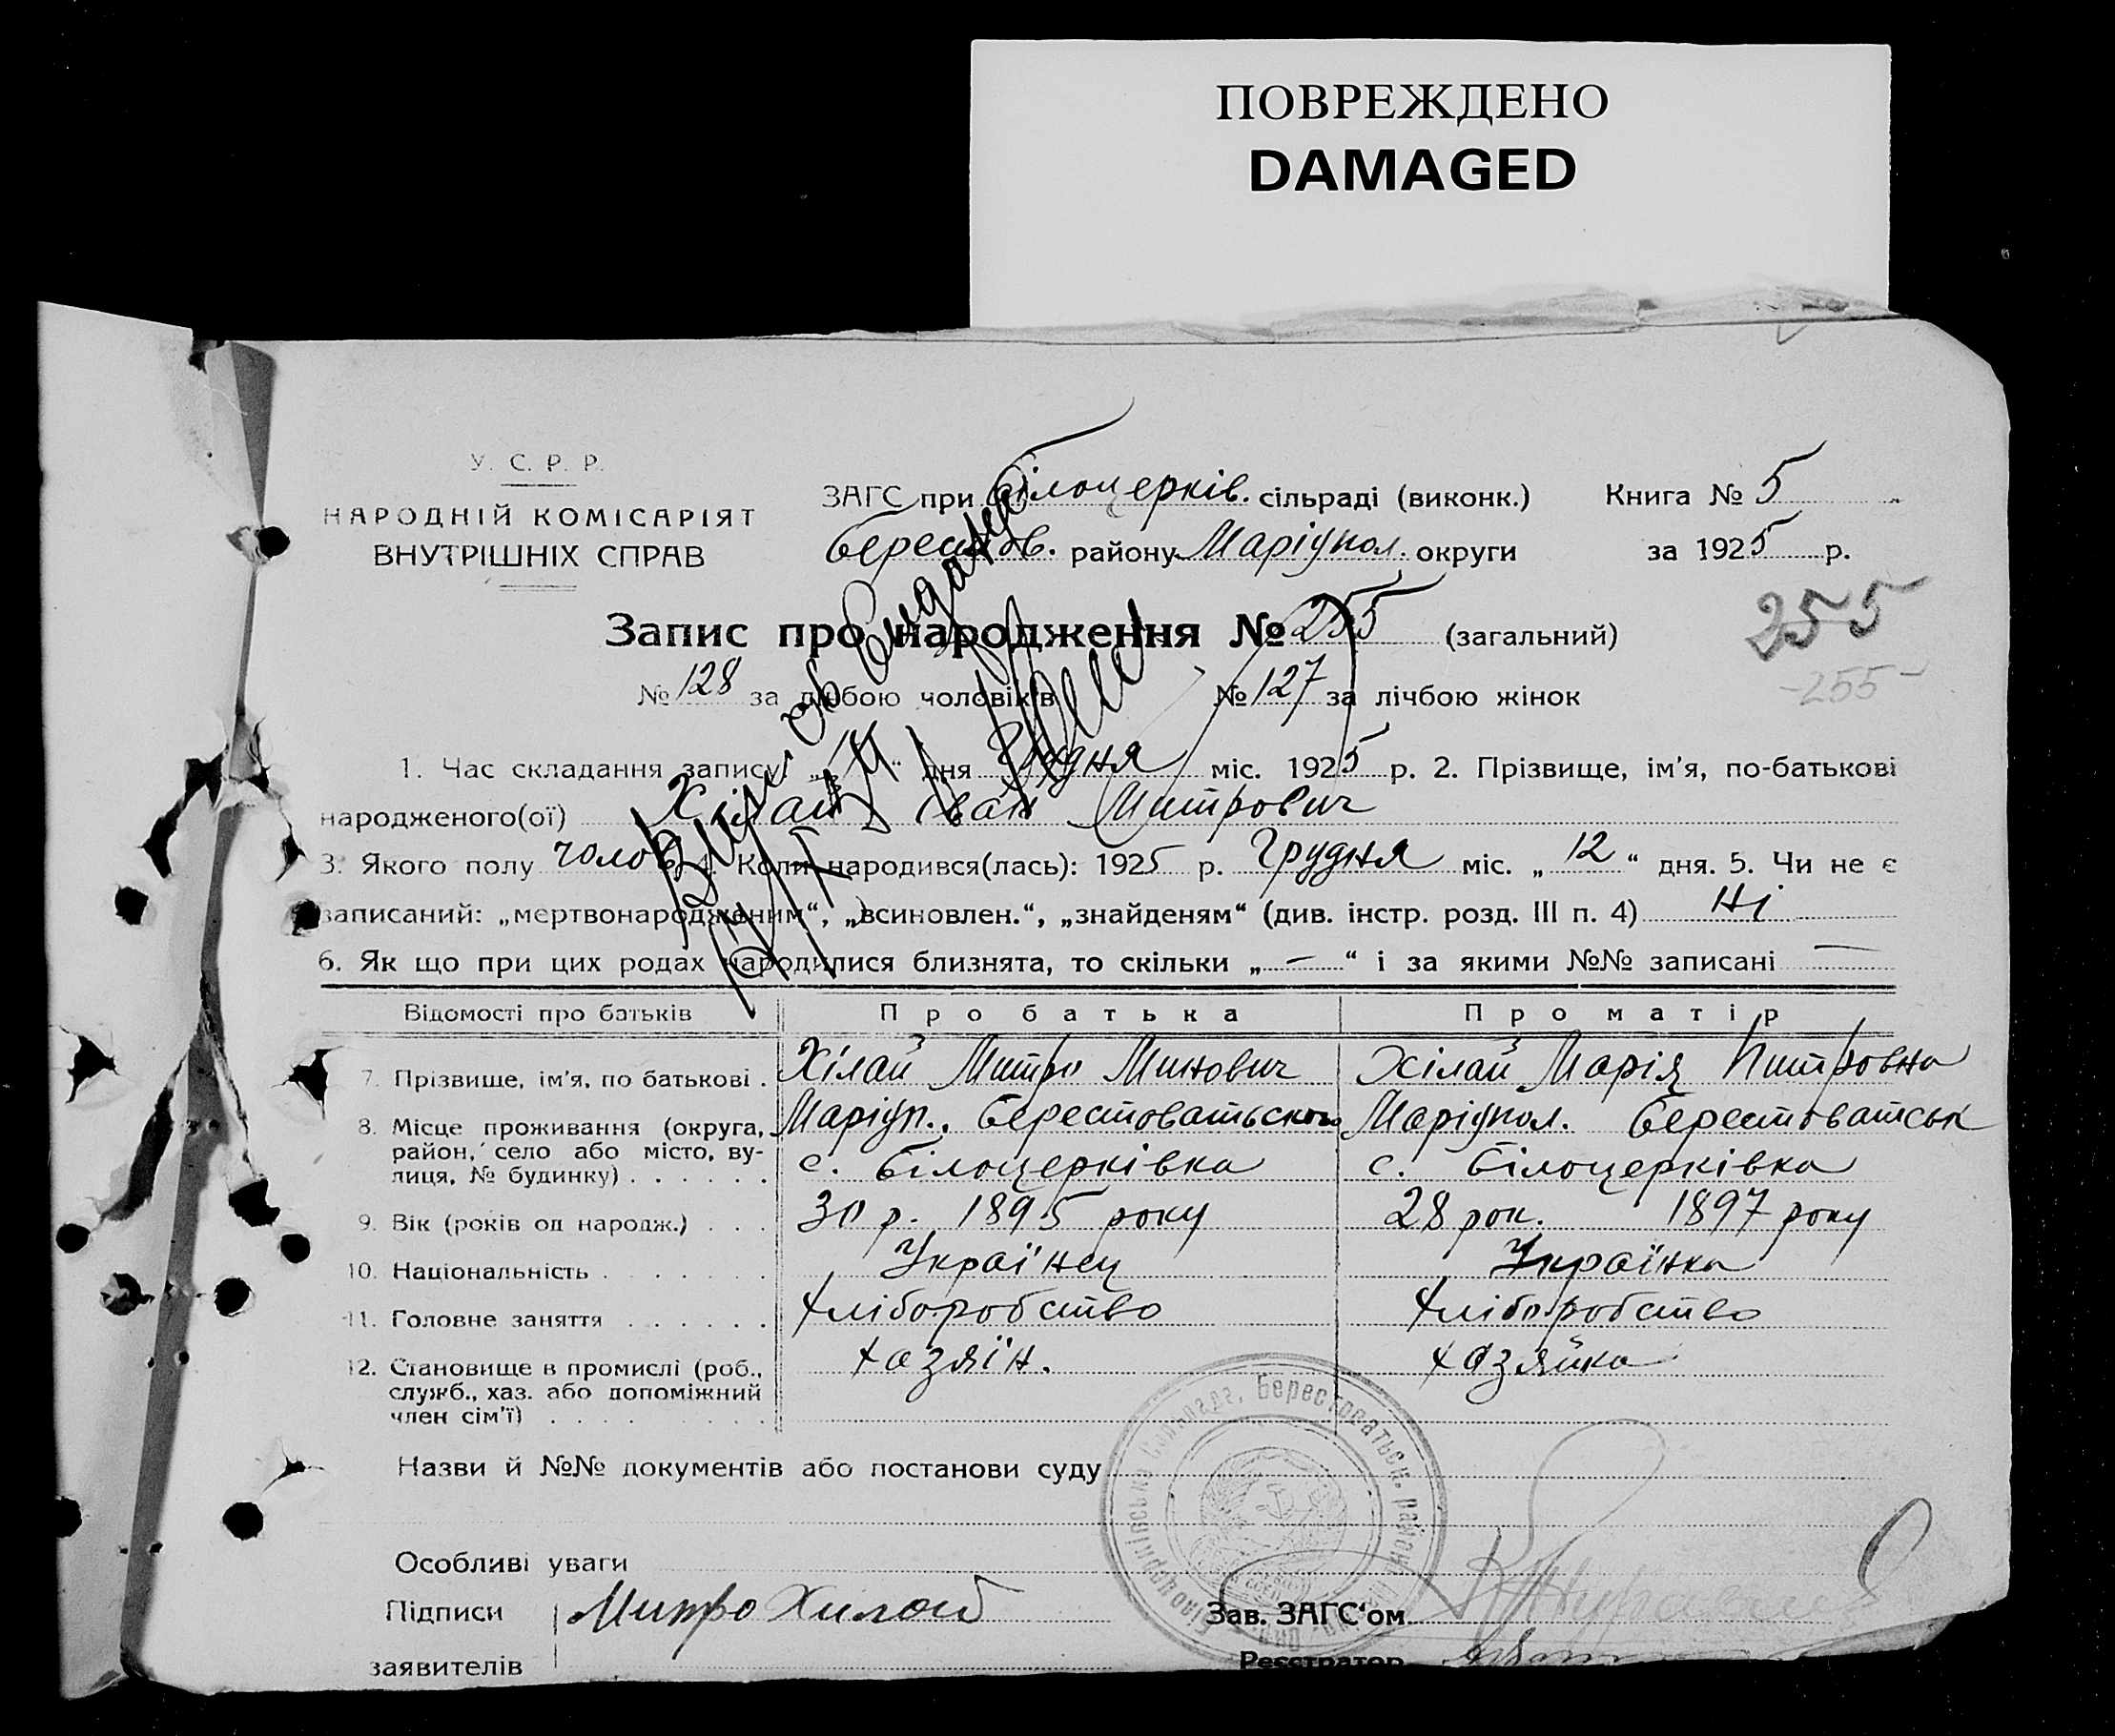 ПОВРЕЖДЕНО
DAMAGED
У. С. Р. Р.
НАРОДНІЙ КОМІСАРІЯТ
ВНУТРІШНІХ СПРАВ
ЗАГС при Білоцерків. сільраді (виконк.) Книга № 5
Берестов. району Маріупол. округи за 1925 р.
Запис про народження № 255 (загальний)
255
№ 128 за лічбою чоловіків № 127 за лічбою жінок
-255-
1. Час складання запису: „ “ дня Грудня міс. 1925 р. 2. Прізвище, ім’я, по-батькові
народженого(ої) Хілай Іван Митрович
3. Якого полу чолов. 4. Коли народився(лась): 1925 р. Грудня міс. „12“ дня. 5. Чи не є
записаний: „мертвонародженим“, „всиновлен.“, „знайденям“ (див. інстр. розд. III п. 4) Ні
6. Як що при цих родах народилися близнята, то скільки „—“ і за якими №№ записані —
Відомості про батьків Про батька Про матір
7. Прізвище, ім’я, по батькові . Хілай Митро Минович Хілай Марія Питровна
8. Місце проживання (округа, Маріуп. Берестоватьского Маріупол. Берестоватськ
район, село або місто, ву-
лиця, № будинку) . . . . . . с. Білоцерківка с. Білоцерківка
9. Вік (років од народж.) . . . 30 р. 1895 року 28 рок. 1897 року
10. Національність . . . . . . . Українец Українка
11. Головне заняття . . . . . . Хліборобство Хліборобство
12. Становище в промислі (роб., хазяїн. хазяйка
служб., хаз. або допоміжний
член сім’ї) . . . . . . . . .
Назви й №№ документів або постанови суду
Особливі уваги
Підписи Митро Хилай Зав. ЗАГС‘ом
заявителів Реєстратор